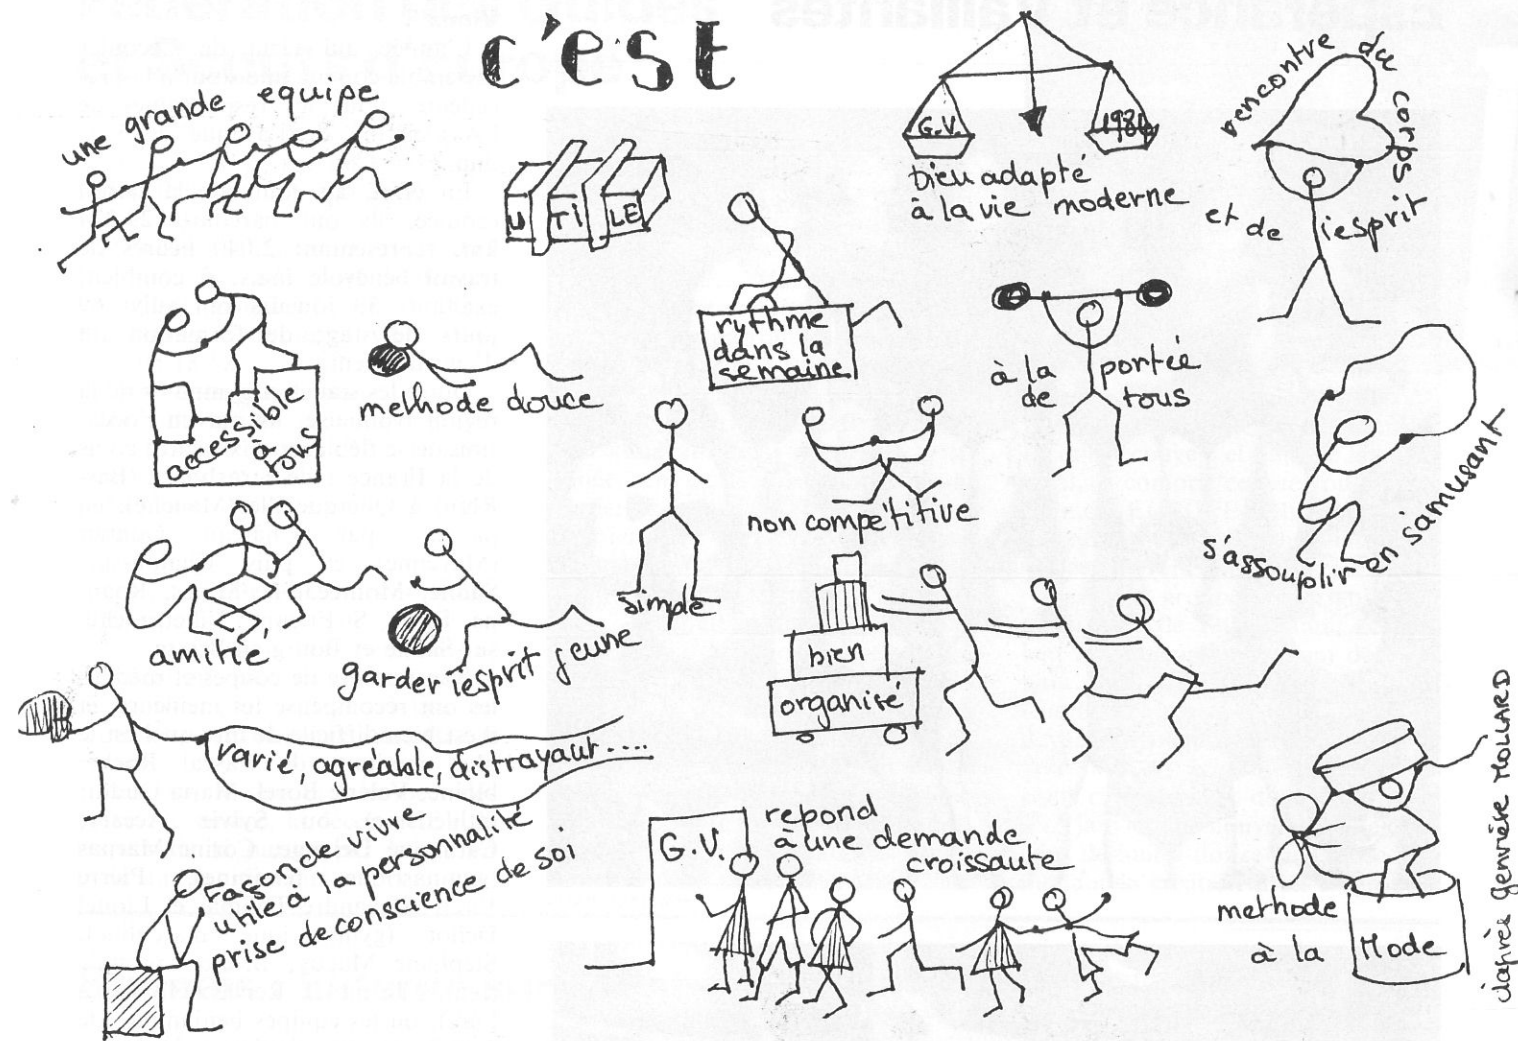 c'est
une grande equipe
UTILE
G.V.
bien adapté
à la vie moderne
rencontre du
corps
et de l'esprit
accessible
à
tous
methode douce
rythme
dans la
semaine
à la portée
de tous
simple
non compétitive
s'assouplir en s'amusant
amitié
garder l'esprit jeune
bien
organisé
varié, agréable, distrayant....
Façon de vivre
utile à la personnalité
prise de conscience de soi
G.V.
repond
à une demande
croissante
methode
à la Mode
d'après Genviève MOLLARD